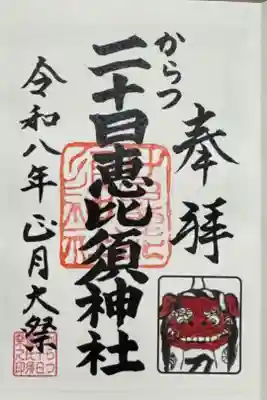 奉拝
からつ
二十日恵比須神社
令和八年正月大祭